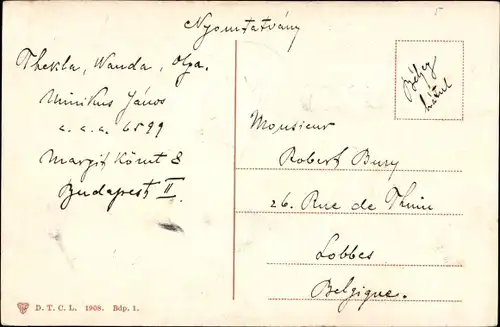 Nyomtatvány
Thekla, Wanda, Olga.
Minikus János
a. a. a. 6599
Margit körút 8
Budapest II.
Bélyeg
hátul
Monsieur
Robert Bury
26. Rue de Thuin
Lobbes
Belgique.
D. T. C. L. 1908. Bdp. 1.